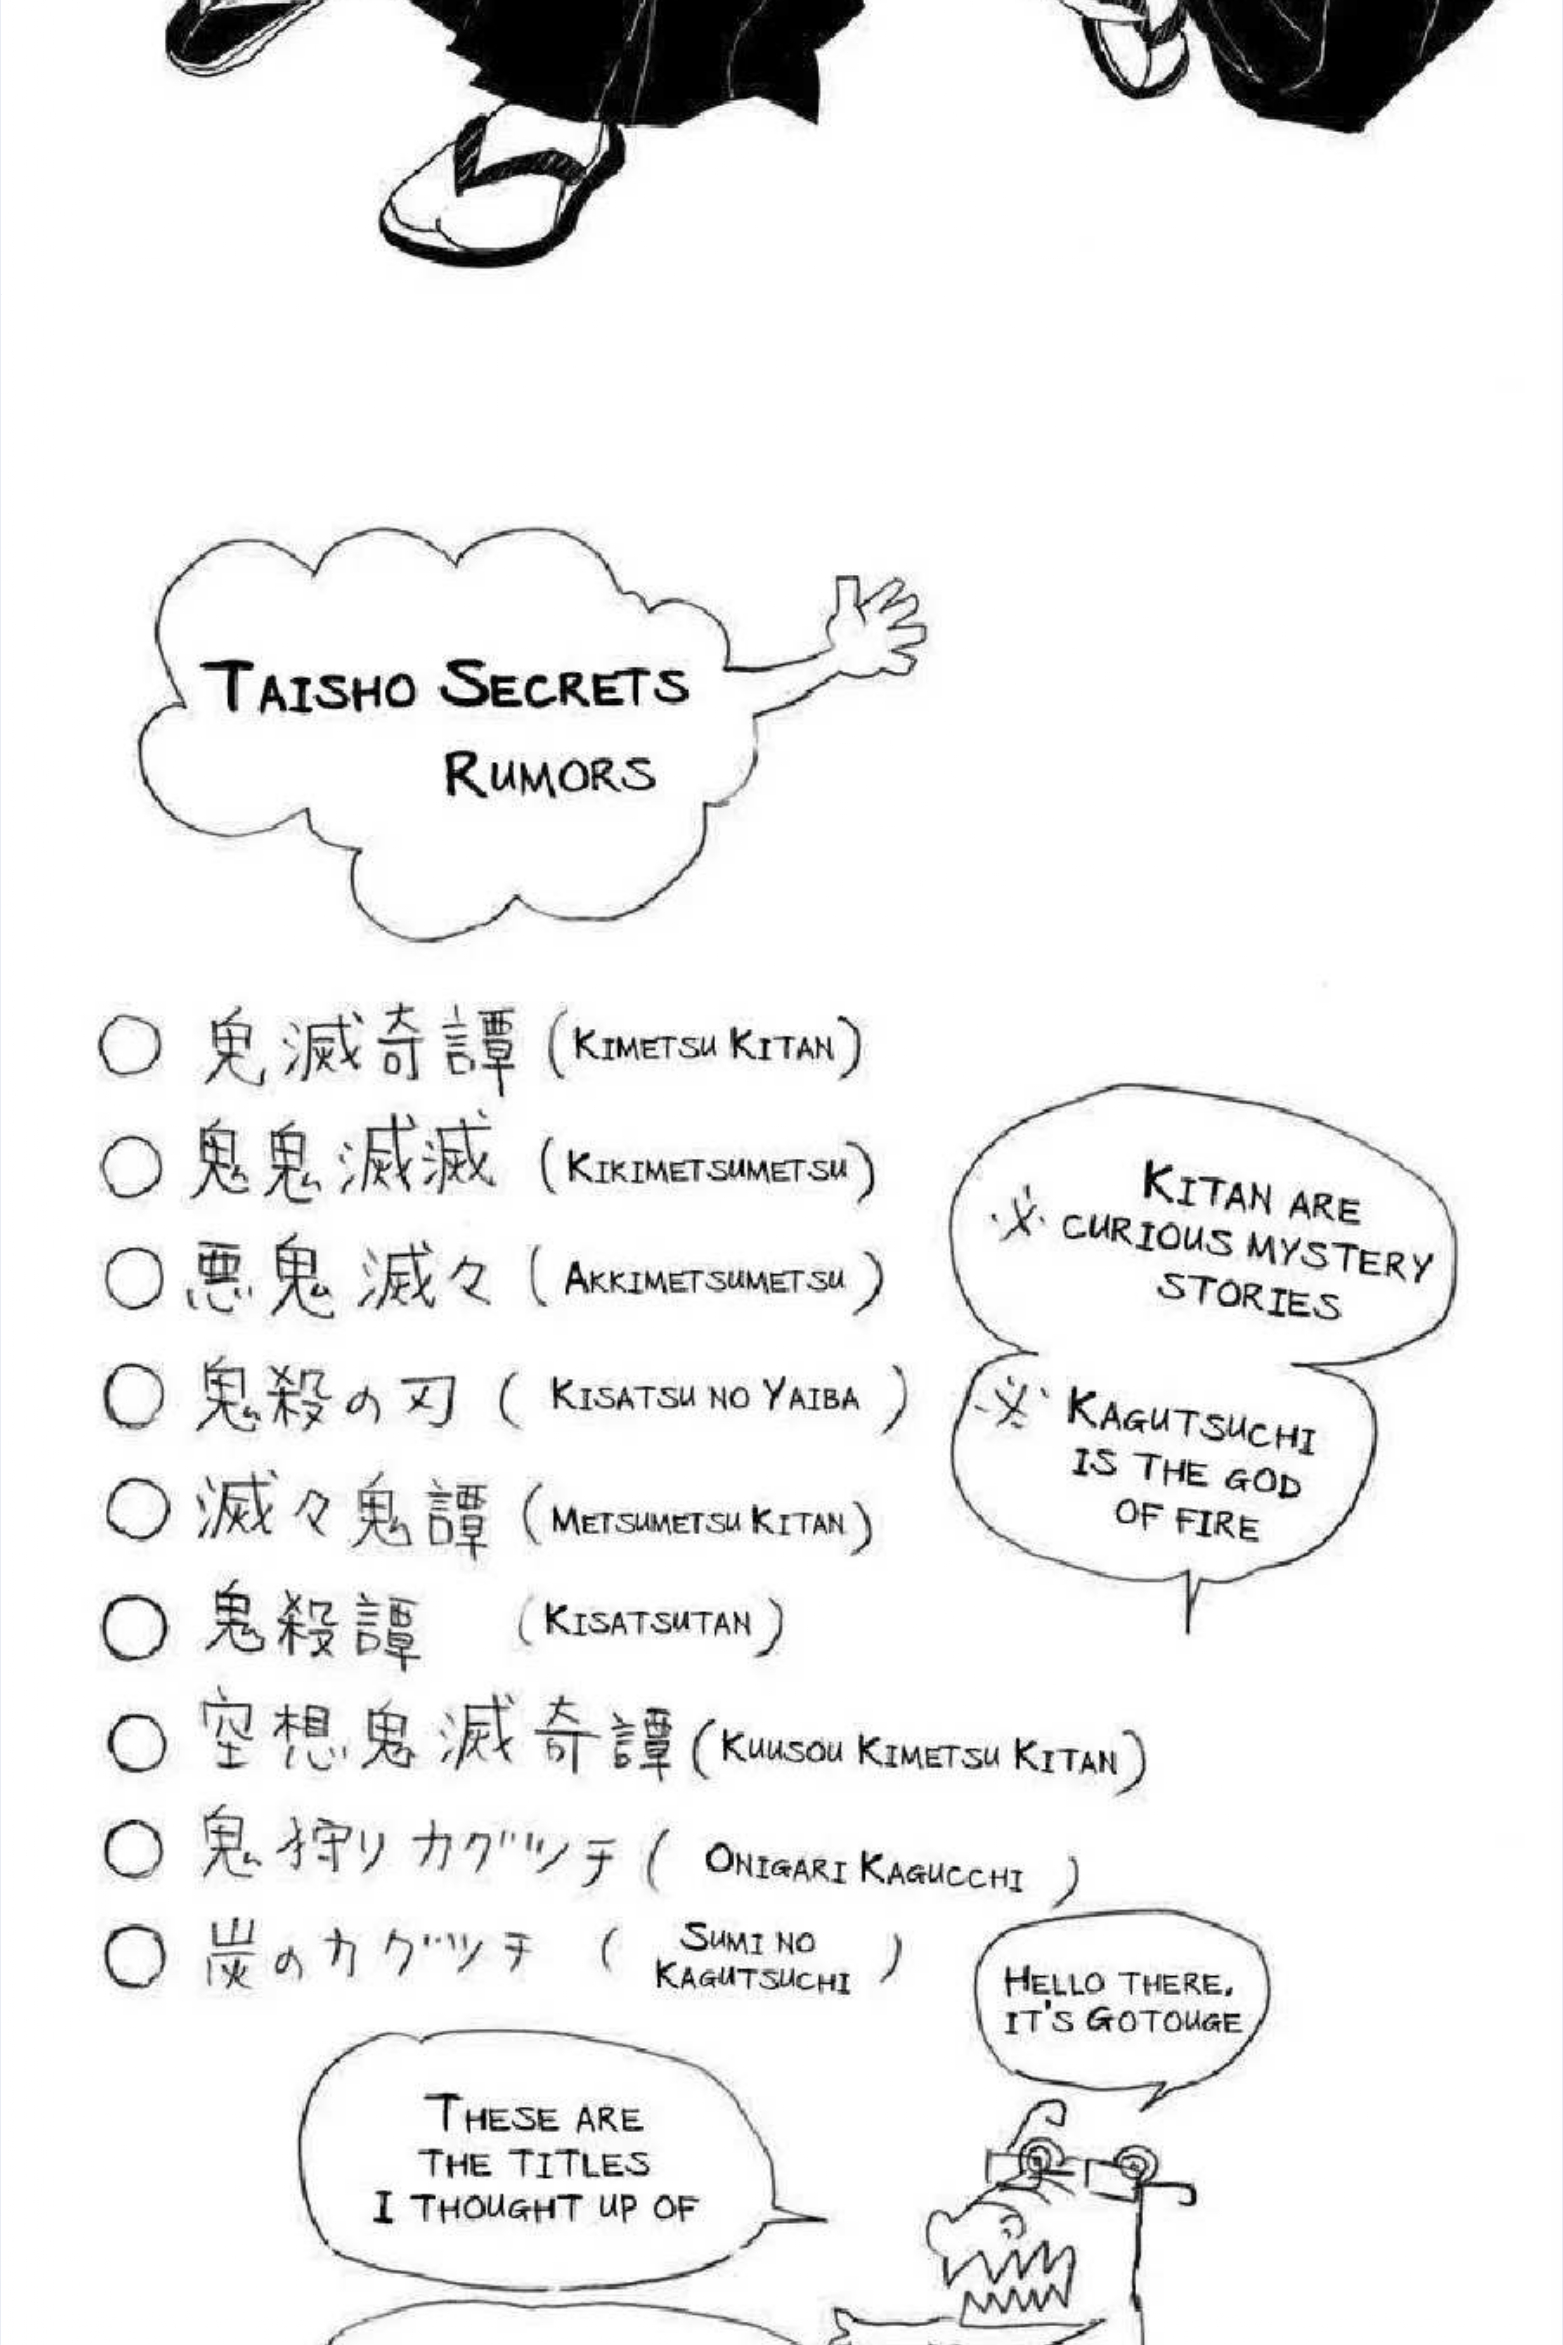 TAISHO SECRETS
RUMORS
○ 鬼滅奇譚 (KIMETSU KITAN)
○ 鬼鬼滅滅 (KIKIMETSUMETSU)
○ 悪鬼滅々 (AKKIMETSUMETSU)
○ 鬼殺の刃 (KISATSU NO YAIBA)
○ 滅々鬼譚 (METSUMETSU KITAN)
○ 鬼殺譚 (KISATSUTAN)
○ 空想鬼滅奇譚 (KUUSOU KIMETSU KITAN)
○ 鬼狩りカグツチ (ONIGARI KAGUCCHI)
○ 炭のカグツチ (SUMI NO
KAGUTSUCHI)
KITAN ARE
※ CURIOUS MYSTERY
STORIES
※ KAGUTSUCHI
IS THE GOD
OF FIRE
HELLO THERE,
IT'S GOTOUGE
THESE ARE
THE TITLES
I THOUGHT UP OF